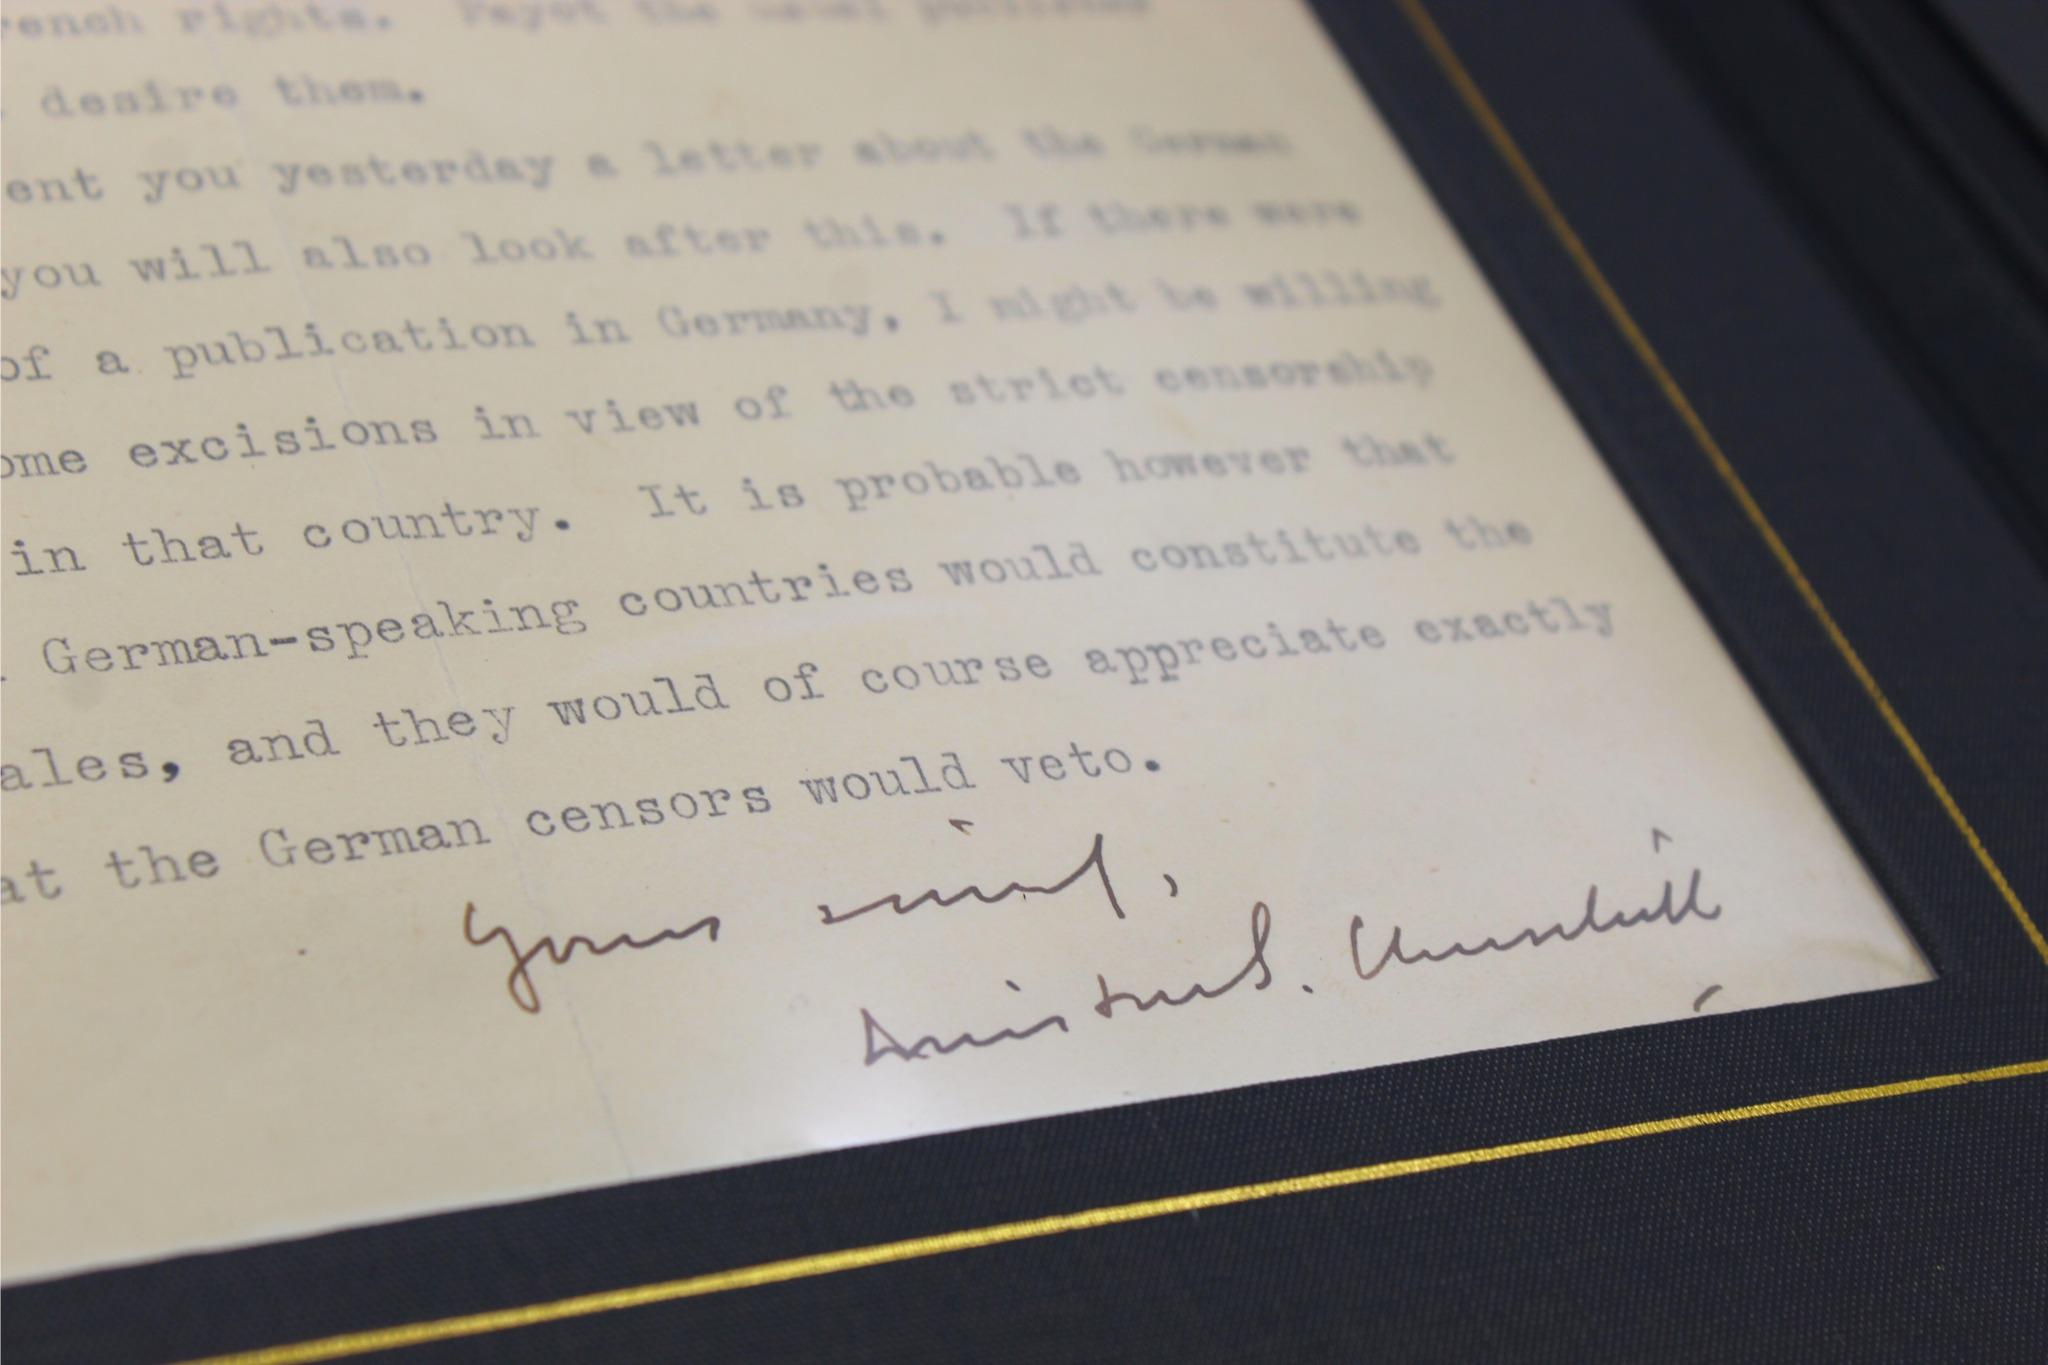 rench rights. Payot the usual publisher
desire them.
ent you yesterday a letter about the German
you will also look after this. If there were
of a publication in Germany, I might be willing
ome excisions in view of the strict censorship
in that country. It is probable however that
German-speaking countries would constitute the
ales, and they would of course appreciate exactly
at the German censors would veto.
Yours
Winston S. Churchill